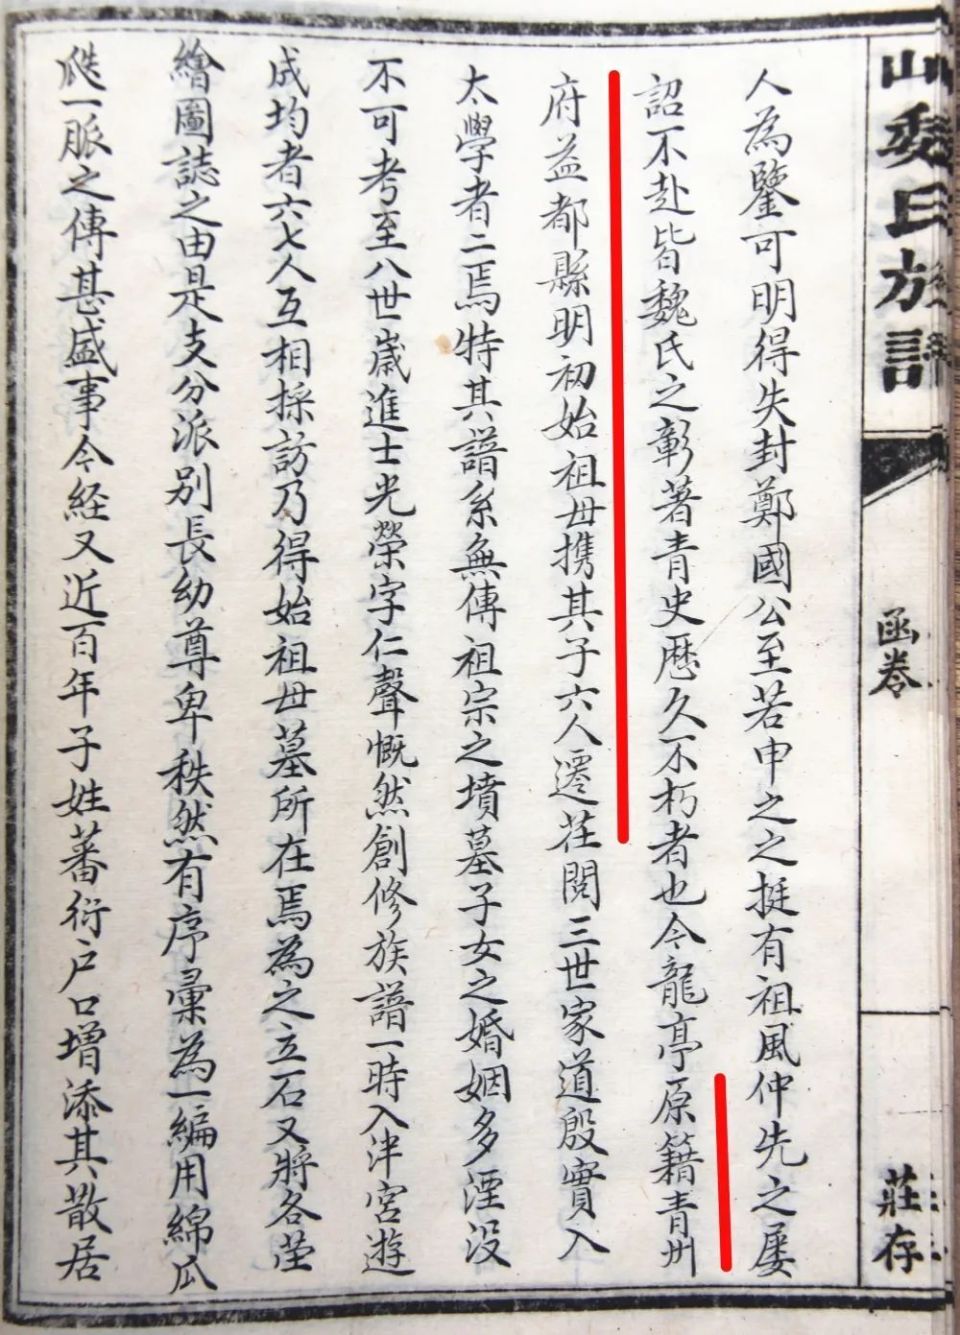 山魏氏族譜
函卷
莊存
人為鑒可明得失封鄭國公至若申之之挺有祖風仲先之屢
詔不赴皆魏氏之彰著青史歷久不朽者也今龍亭原籍青州
府益都縣明初始祖母携其子六人遷莊閱三世家道殷實入
太學者二焉特其譜系無傳祖宗之墳墓子女之婚姻多湮沒
不可考至八世歲進士光榮字仁聲慨然創修族譜一時入泮宮遊
成均者六七人互相採訪乃得始祖母墓所在焉為之立石又將各塋
繪圖誌之由是支分派別長幼尊卑秩然有序彙為一編用綿瓜
瓞一脈之傳甚盛事今経又近百年子姓蕃衍户口增添其散居